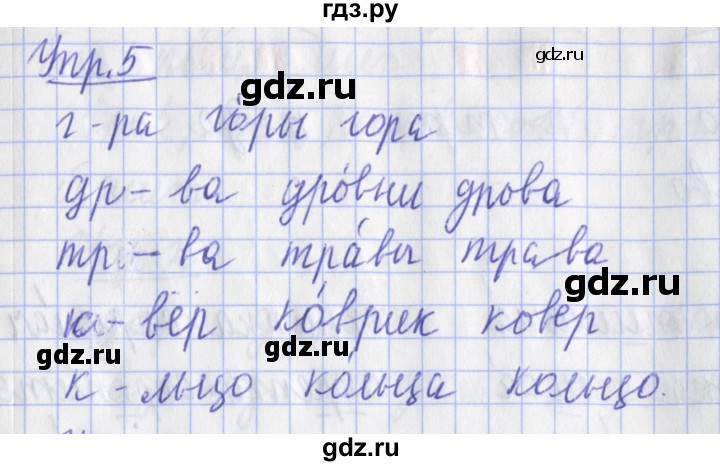 гдз.ру
gdz.ru
Упр. 5
gdz.ru
г-ра го́ры гора
др-ва дро́вни дрова
тр-ва тра́вы трава
gdz.ru
к-вёр ко́врик ковёр
gdz.ru
gdz.ru
к-льцо ко́льца кольцо.
gdz.ru